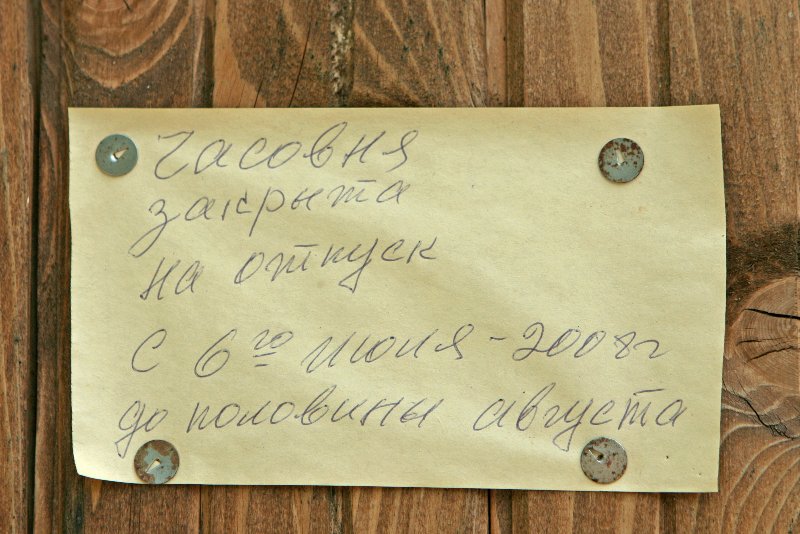 Часовня
закрыта
на отпуск
С 6го июля - 2008г
до половины августа